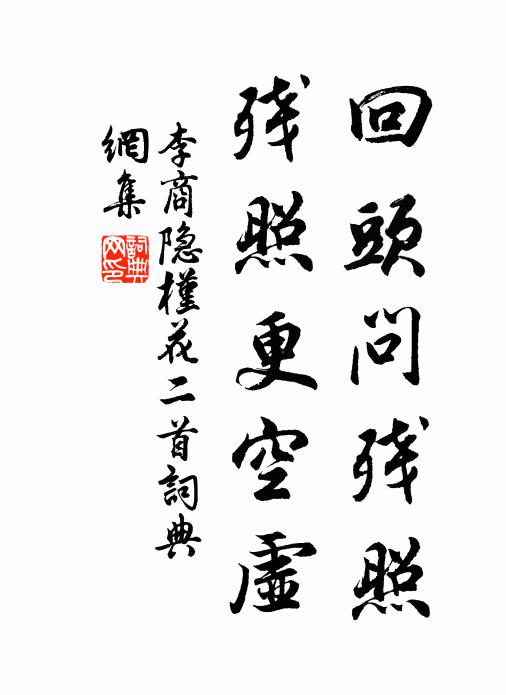 回頭问残照
残照更空虛
李商隐槿花二首詞典
網集
詞典
网印